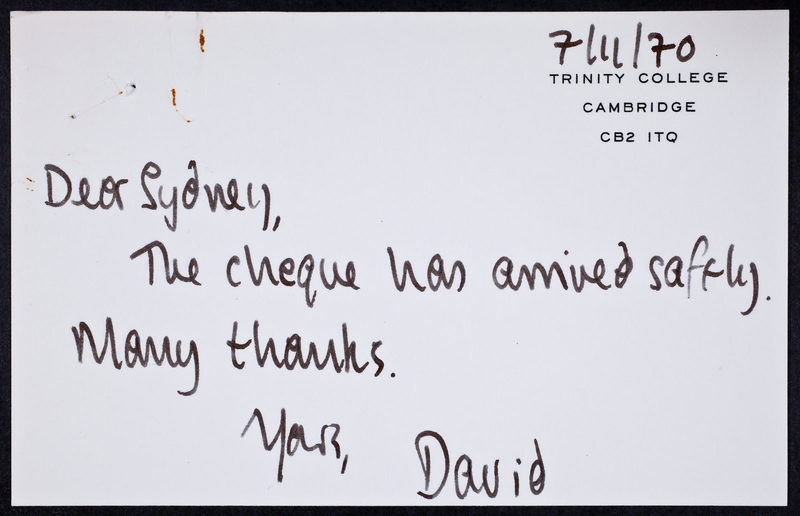 7/11/70
TRINITY COLLEGE
CAMBRIDGE
CB2 1TQ
Dear Sydney,
The cheque has arrived safely.
Many thanks.
Yours,
David